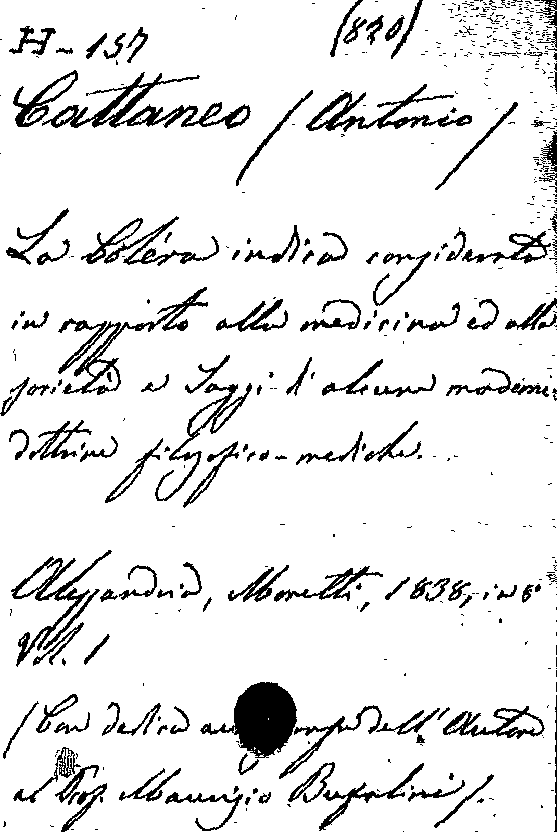 H-157 (820)
Cattaneo (Antonio)
La Coléra indica considerata
in rapporto alla medicina ed alla
società e Saggi d'alcune moderne
dottrine filosofico-mediche.
Alessandria, Moretti, 1838, in 8°
Vol. 1
(Con dedica dell'Autore
al Prof. Maurizio Bufalini).